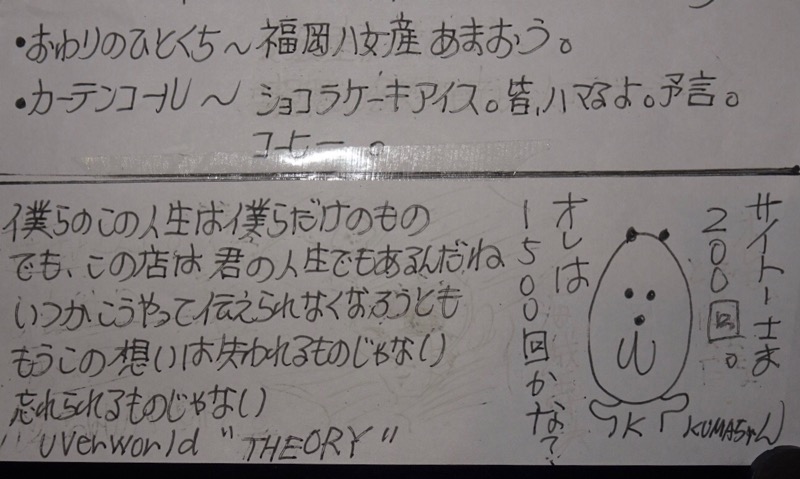 •おわりのひとくち〜福岡八女産あまおう。
•カーテンコール〜ショコラケーキアイス。皆、ハマるよ。予言。
コーヒー。
僕らのこの人生は僕らだけのもの
でも、この店は君の人生でもあるんだね
いつかこうやって伝えられなくなろうとも
もうこの想いは失われるものじゃない
忘れられるものじゃない
UVERworld "THEORY"
サイトー士は
200回。
オレは
1500回かな?
KUMAちゃん